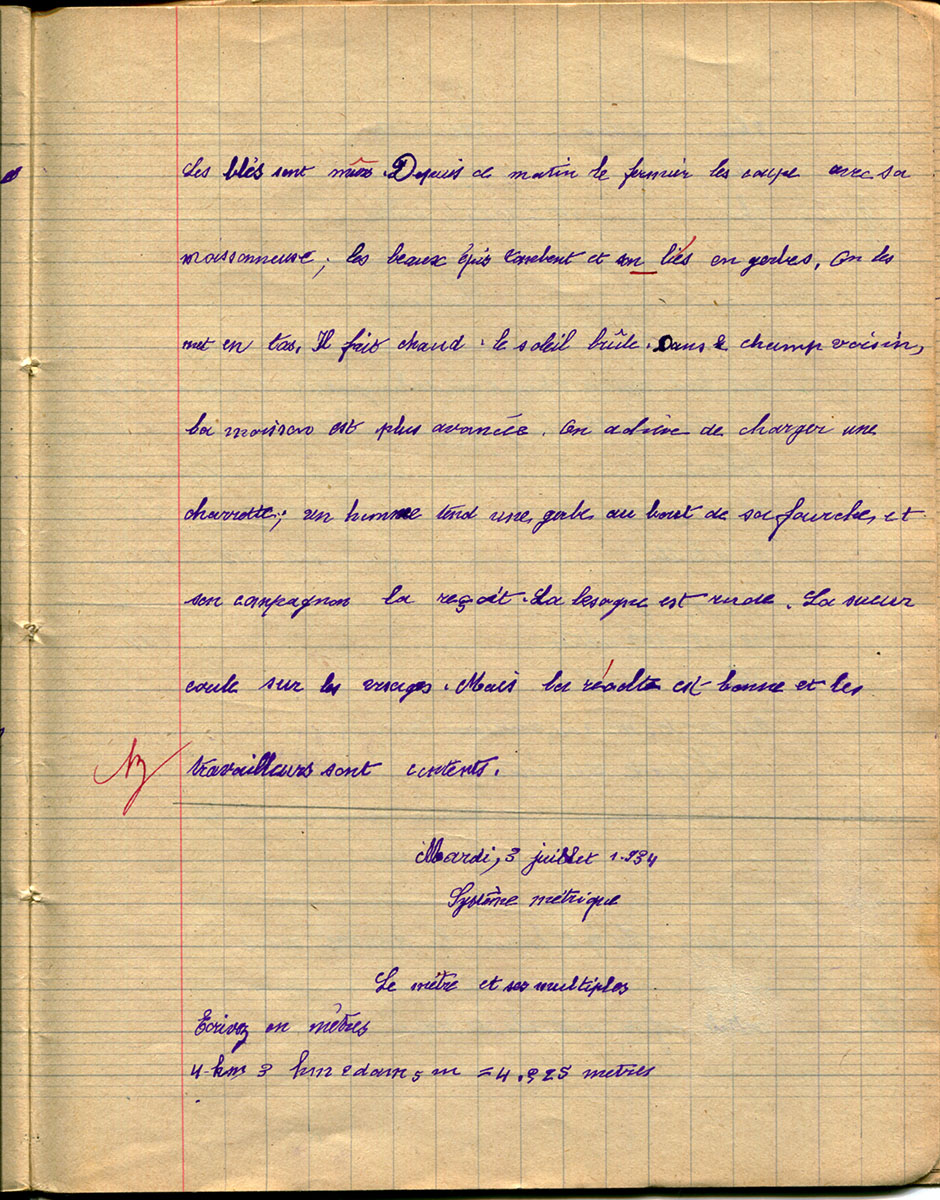 Les blés sont mûrs. Depuis ce matin le fermier les coupe avec sa
moissonneuse; les beaux épis tombent et son liés en gerbes. On les
met en tas. Il fait chaud. le soleil brûle. Dans le champ voisin,
la moisson est plus avancée. On achève de charger une
charrette; un homme tend une gerbe au bout de sa fourche, et
son compagnon la reçoit. La besogne est rude. La sueur
coule sur les visages. Mais la récolte est bonne et les
travailleurs sont contents.
Mardi, 3 juillet 1.934
Système métrique
Le mètre et ses multiples
Ecrivez en mètres
4 km 3 hm 2 dam 5 m = 4.325 metres